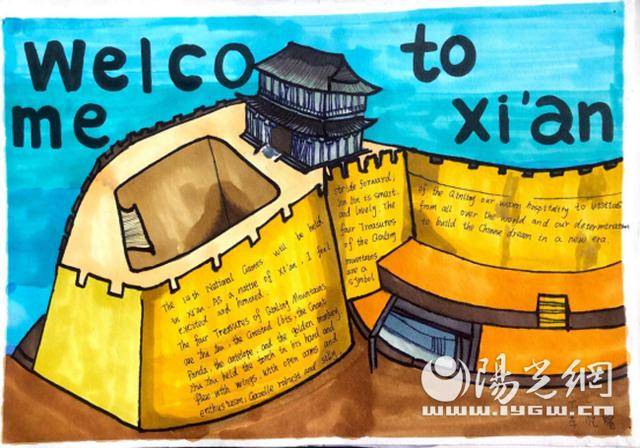 Welco to
me xi'an
The 14th National Games will be held
in xi'an. As a native of xi'an. I feel
excited and honored.
The four Treasures of Qinling Mountains
are Zhu Zhu, the Crested Ibis, the Giant
Panda, the antelope, and the golden monkey.
Zhu Zhu held the torch in his hand and
flew with wings, with open arms and
enthusiasm; Candle robust and calm,
stride forward;
Jin Jin is smart
and lively. The
four Treasures
of the Qinling
mountains
are a
symbol
of the Qinling our warm hospitality to visitors
from all over the world and our determination
to build the Chinese dream in a new era.
陽光網
www.iygw.cn